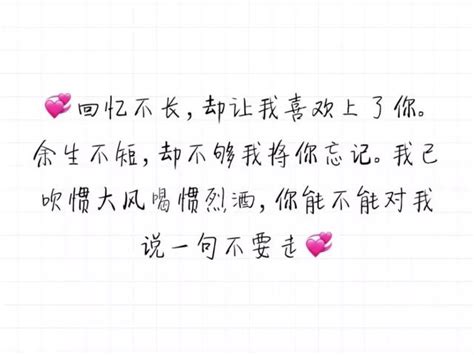 💞回忆不长,却让我喜欢上了你。
余生不短,却不够我将你忘记。我已
吹惯大风喝惯烈酒,你能不能对我
说一句不要走💞